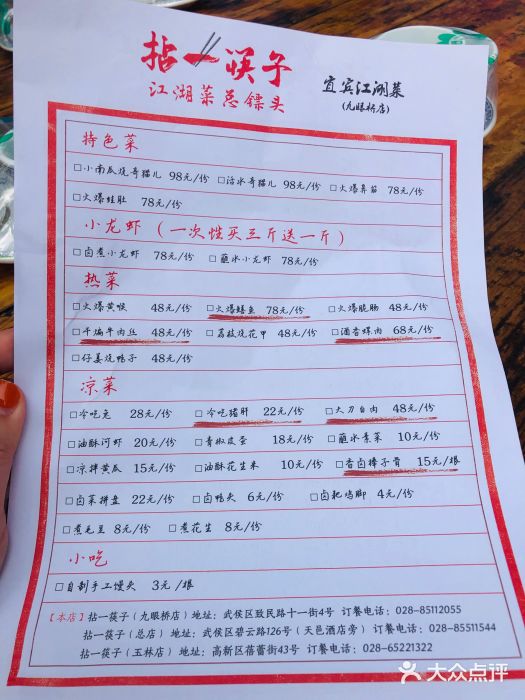 拈一筷子
江湖菜总镖头
宜宾江湖菜
(九眼桥店)
特色菜
□小南瓜烧哥猫儿 98元/份 □沾水哥猫儿 98元/份 □火爆鼻筋 78元/份
□火爆蛙肚 78元/份
小龙虾（一次性买三斤送一斤）
□卤煮小龙虾 78元/份 □蘸水小龙虾 78元/份
热菜
□火爆黄喉 48元/份 □火爆鳝鱼 78元/份 □火爆脆肠 48元/份
□干煸牛肉丝 48元/份 □荔枝烧花甲 48元/份 □酒香螺肉 68元/份
□仔姜烧鸭子 48元/份
凉菜
□冷吃兔 28元/份 □冷吃猪肝 22元/份 □大刀白肉 48元/份
□油酥河虾 20元/份 □青椒皮蛋 18元/份 □蘸水素菜 10元/份
□凉拌黄瓜 15元/份 □油酥花生米 10元/份 □香卤棒子骨 15元/根
□卤菜拼盘 22元/份 □卤鸭头 6元/份 □卤粑鸡脚 4元/份
□煮毛豆 8元/份 □煮花生 8元/份
小吃
□自制手工馒头 3元/根
【本店】拈一筷子（九眼桥店）地址：武侯区致民路十一街4号 订餐电话：028-85112055
拈一筷子（总店）地址：武侯区碧云路126号（天邑酒店旁）订餐电话：028-85511544
拈一筷子（玉林店）地址：高新区蓓蕾街43号 订餐电话：028-65221322
大众点评